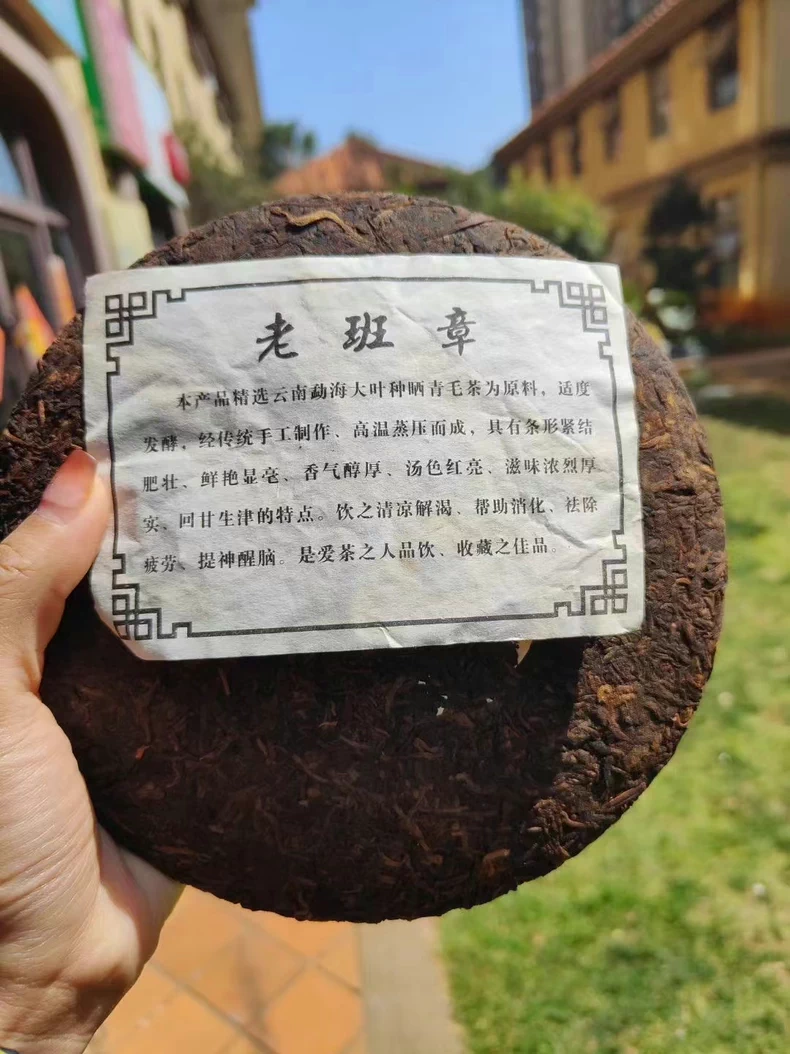 老班章
本产品精选云南勐海大叶种晒青毛茶为原料，适度
发酵，经传统手工制作、高温蒸压而成，具有条形紧结
肥壮、鲜艳显毫、香气醇厚、汤色红亮、滋味浓烈厚
实、回甘生津的特点。饮之清凉解渴、帮助消化、祛除
疲劳、提神醒脑。是爱茶之人品饮、收藏之佳品。